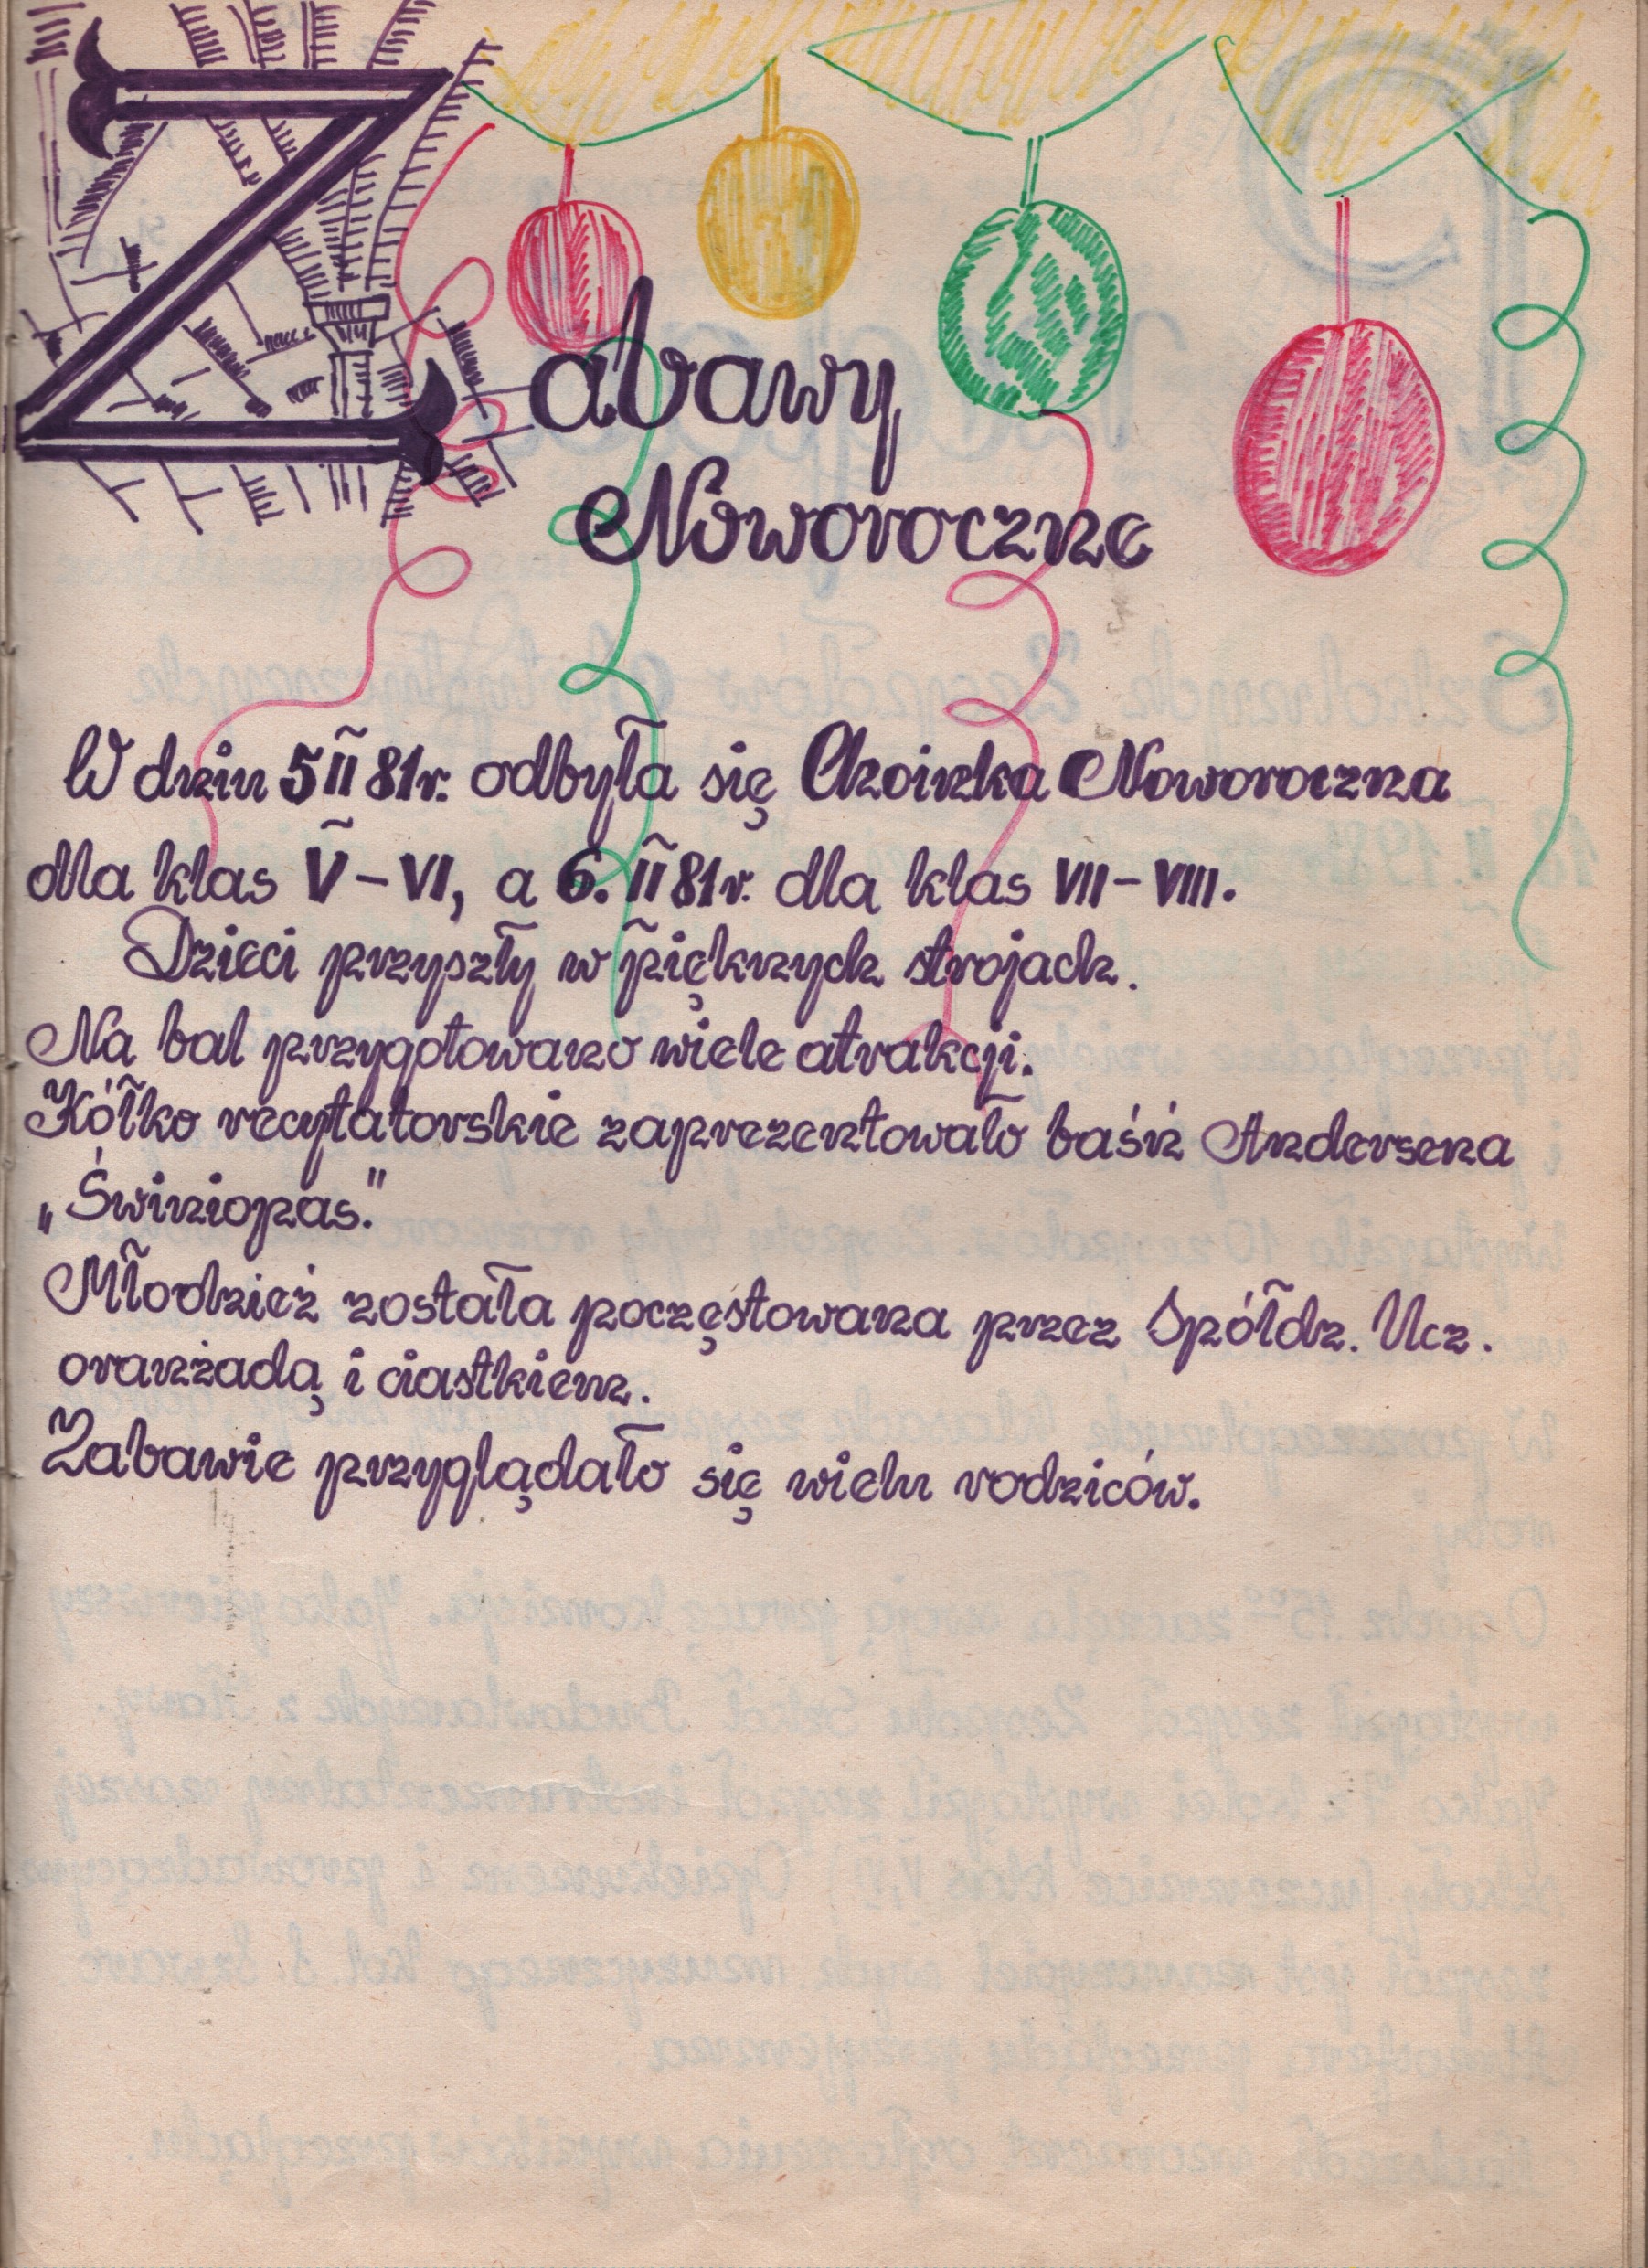 Zabawy
Noworoczne
W dniu 5 II 81r. odbyła się Choinka Noworoczna
dla klas V-VI, a 6. II 81r. dla klas VII-VIII.
Dzieci przyszły w pięknych strojach.
Na bal przygotowano wiele atrakcji.
Kółko recytatorskie zaprezentowało baśń Andersena
„Świniopas."
Młodzież została poczęstowana przez Spółdz. Ucz.
oranżadą i ciastkiem.
Zabawie przyglądało się wielu rodziców.